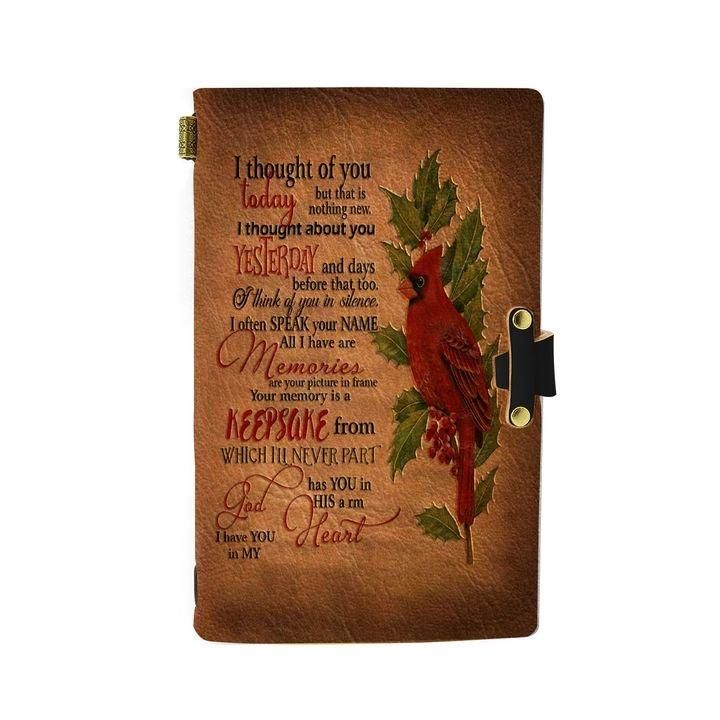 I thought of you
today but that is
nothing new.
I thought about you
YESTERDAY and days
before that too.
I think of you in silence.
I often SPEAK your NAME
All I have are
Memories
are your picture in frame
Your memory is a
KEEPSAKE from
WHICH I'LL NEVER PART
God has YOU in
HIS a rm
I have YOU
in MY Heart